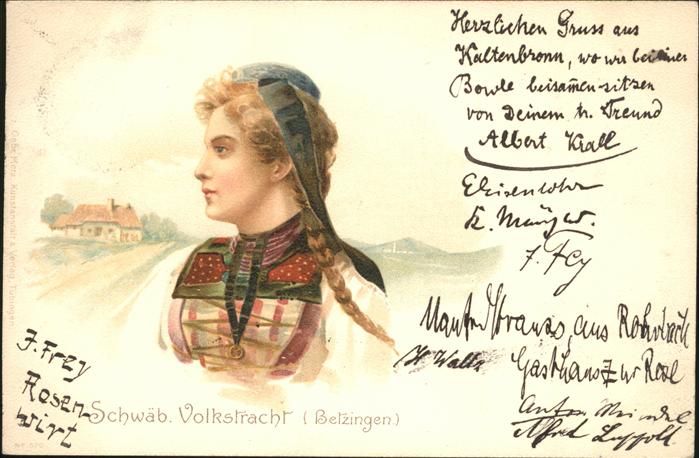 Herzlichen Gruss aus
Kaltenbronn, wo wir bei einer
Bowle beisamen sitzen
von Deinem tr. Freund
Albert Krall
Eisenlohr
F. Frey
Manfred Strauss, aus Rohrbach
Gasthaus Zur Rose
W Waltz
Anton
Alfred Luppold
J. Frey
Rosen-
wirt
Schwäb. Volkstracht (Betzingen.)